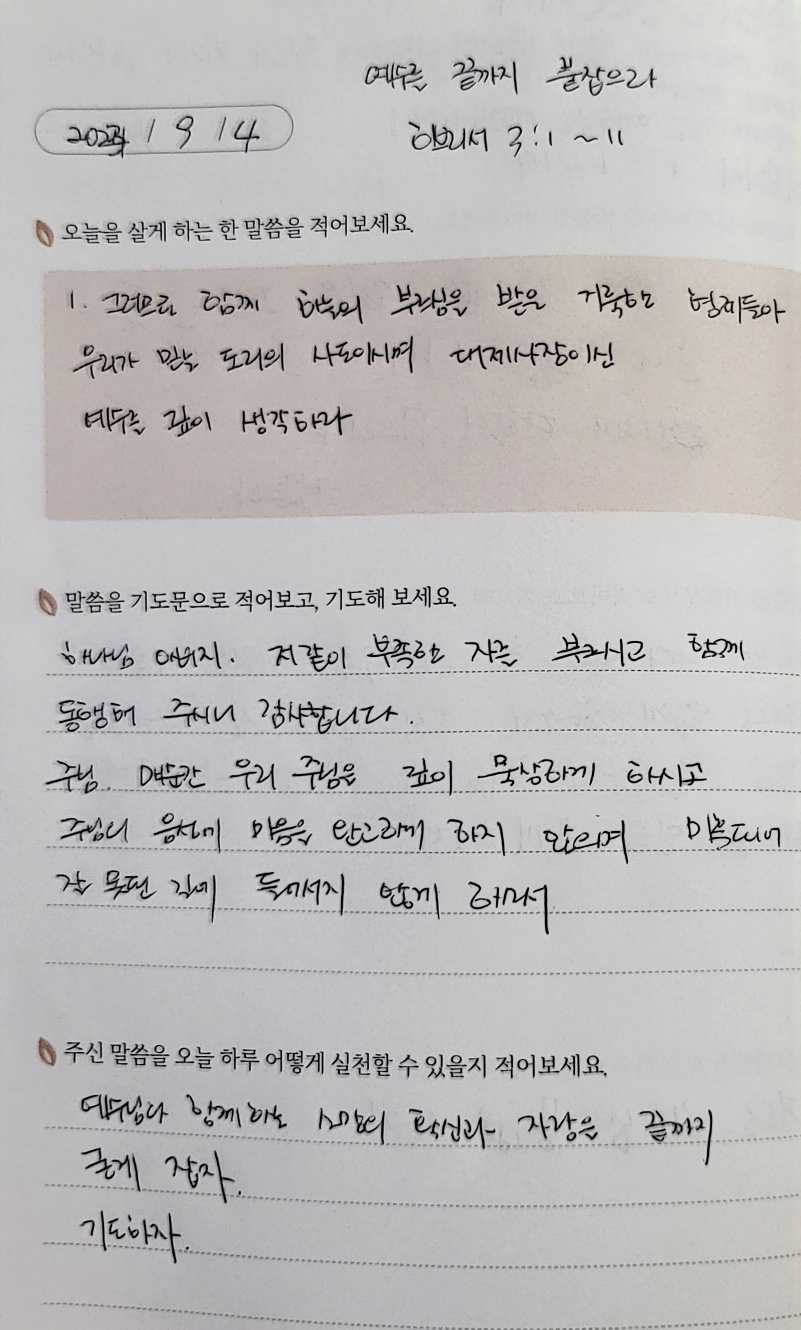 예수를 끝까지 붙잡으라
202 / 9 / 14
히브리서 3:1 ~ 11
오늘을 살게 하는 한 말씀을 적어보세요.
1. 그러므로 함께 하늘의 부르심을 받은 거룩한 형제들아
우리가 믿는 도리의 사도이시며 대제사장이신
예수를 깊이 생각하라
말씀을 기도문으로 적어보고, 기도해 보세요.
하나님 아버지. 저같이 부족한 자를 부르시고 함께
동행해 주시니 감사합니다.
주님. 매순간 우리 주님을 깊이 묵상하게 하시고
주님의 음성에 마음을 완고하게 하지 않으며 미혹되어
잘못된 길에 들어서지 않게 하소서
주신 말씀을 오늘 하루 어떻게 실천할 수 있을지 적어보세요.
예수님과 함께하는 소망의 확신과 자랑을 끝까지
굳게 잡자.
기도하자.